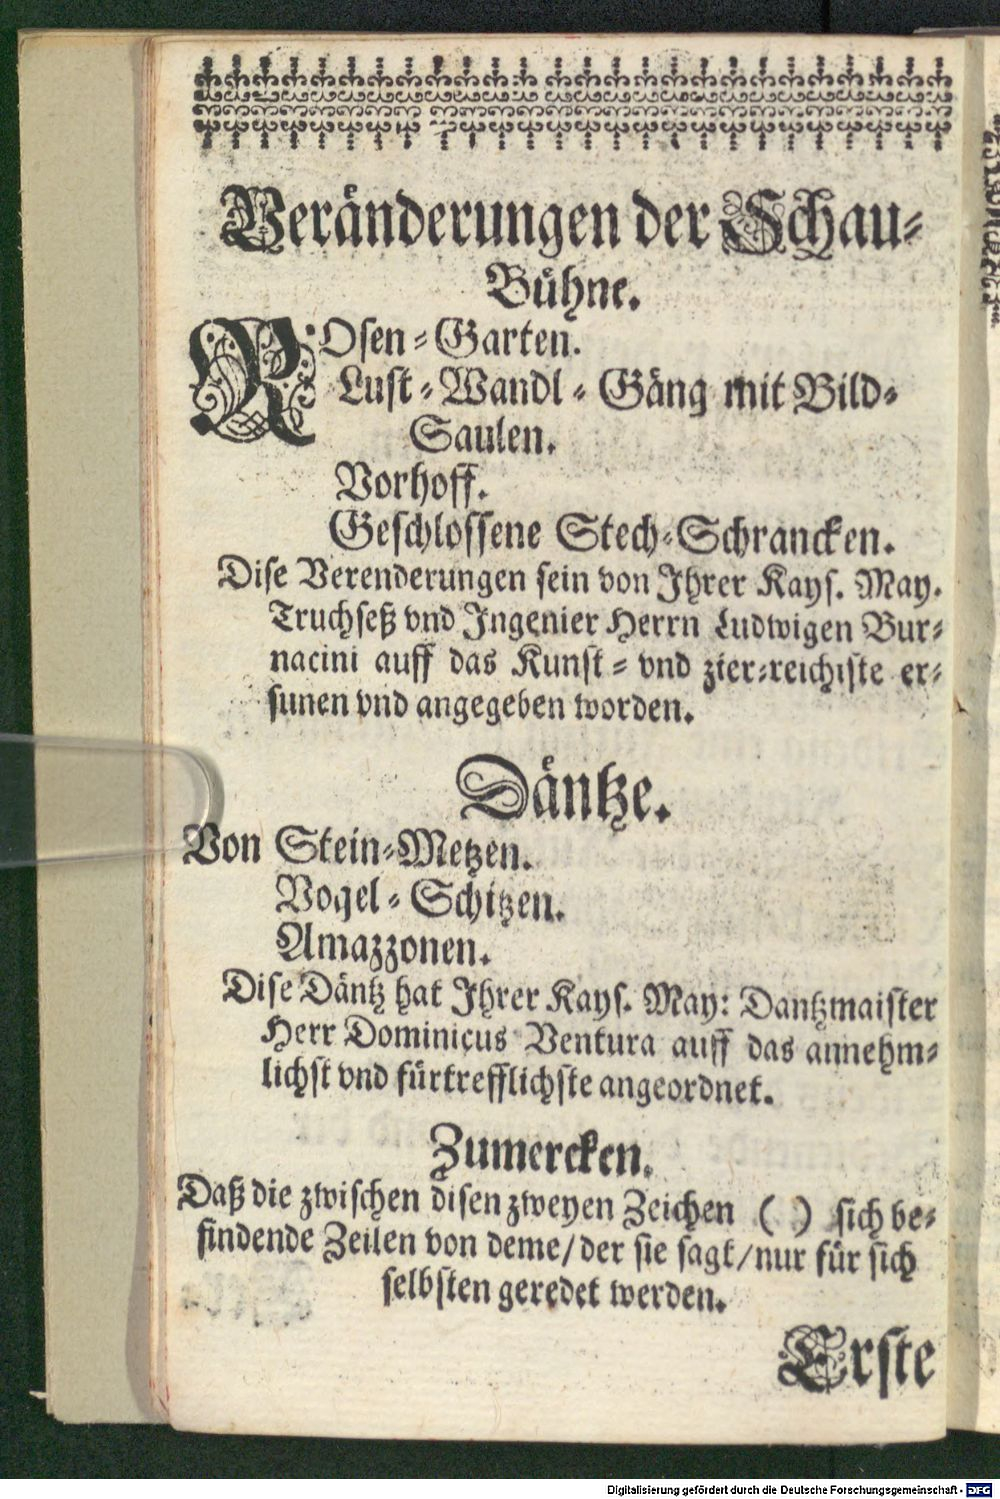 Veränderungen der Schau-
Bühne.
ROsen-Garten.
Lust-Wandl-Gäng mit Bild-
Saulen.
Vorhoff.
Geschlossene Stech-Schrancken.
Dise Verenderungen sein von Ihrer Kays. May.
Truchseß vnd Ingenier Herrn Ludwigen Bur-
nacini auff das Kunst- vnd zier-reichiste er-
sunen vnd angegeben worden.
Däntze.
Von Stein-Metzen.
Vogel-Schitzen.
Amazzonen.
Dise Däntz hat Ihrer Kays. May: Dantzmaister
Herr Dominicus Ventura auff das annehm-
lichst vnd fürtrefflichste angeordnet.
Zumercken.
Daß die zwischen disen zweyen Zeichen ( ) sich be-
findende Zeilen von deme/der sie sagt/nur für sich
selbsten geredet werden.
Erste
Digitalisierung gefördert durch die Deutsche Forschungsgemeinschaft - DFG